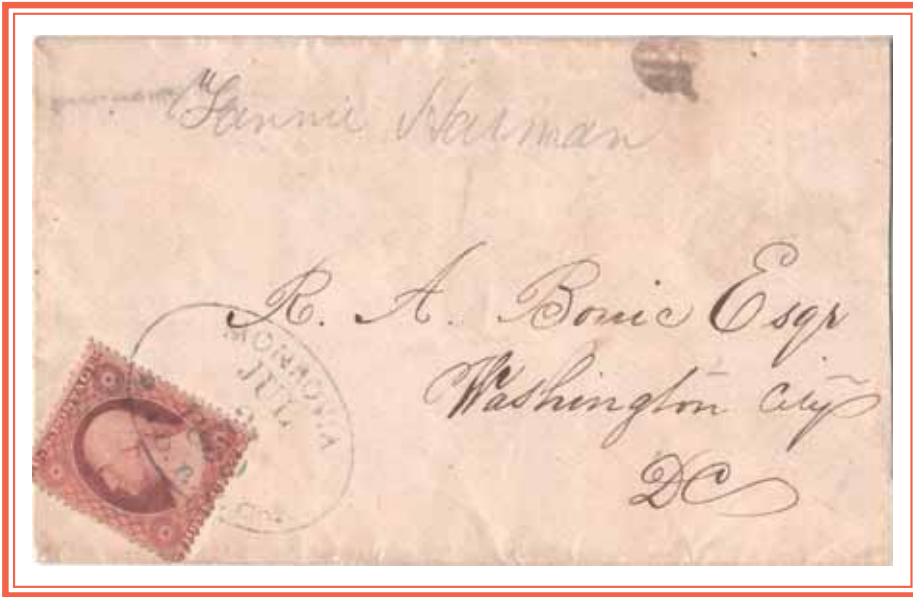 Fannie Harman
R. A. Bonic Esqr
Washington City
DC
MONROVIA
JUL